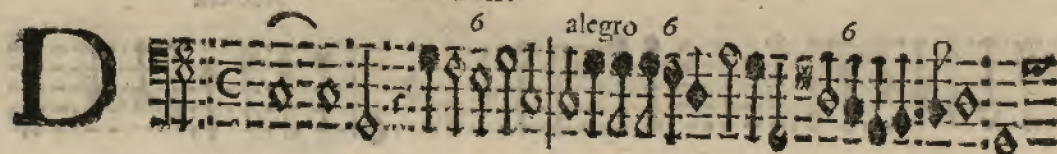 6 alegro 6 6
D